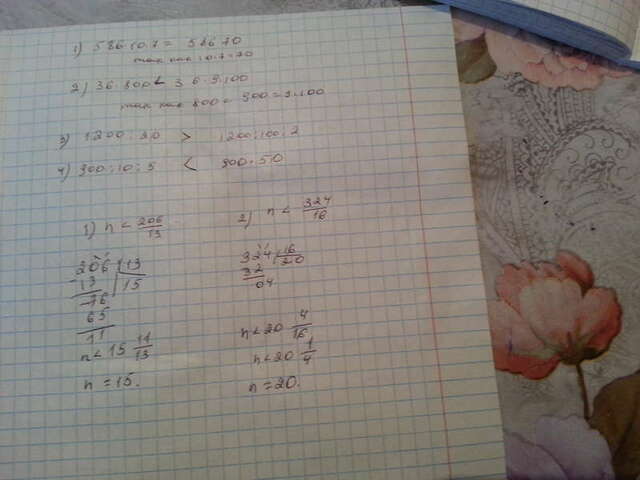 1) 586·10·7 = 586·70
так как 10·7=70
2) 36·800 < 36·9·100
так как 800 < 900=9·100
3) 1200:20 > 1200:100:2
4) 900:10:5 < 900·50
1) n < 206/13
206 | 13
13 | 15
76
65
11
n < 15 11/13
n = 15.
2) n < 324/16
324 | 16
32 | 20
04
n < 20 4/16
n < 20 1/4
n = 20.